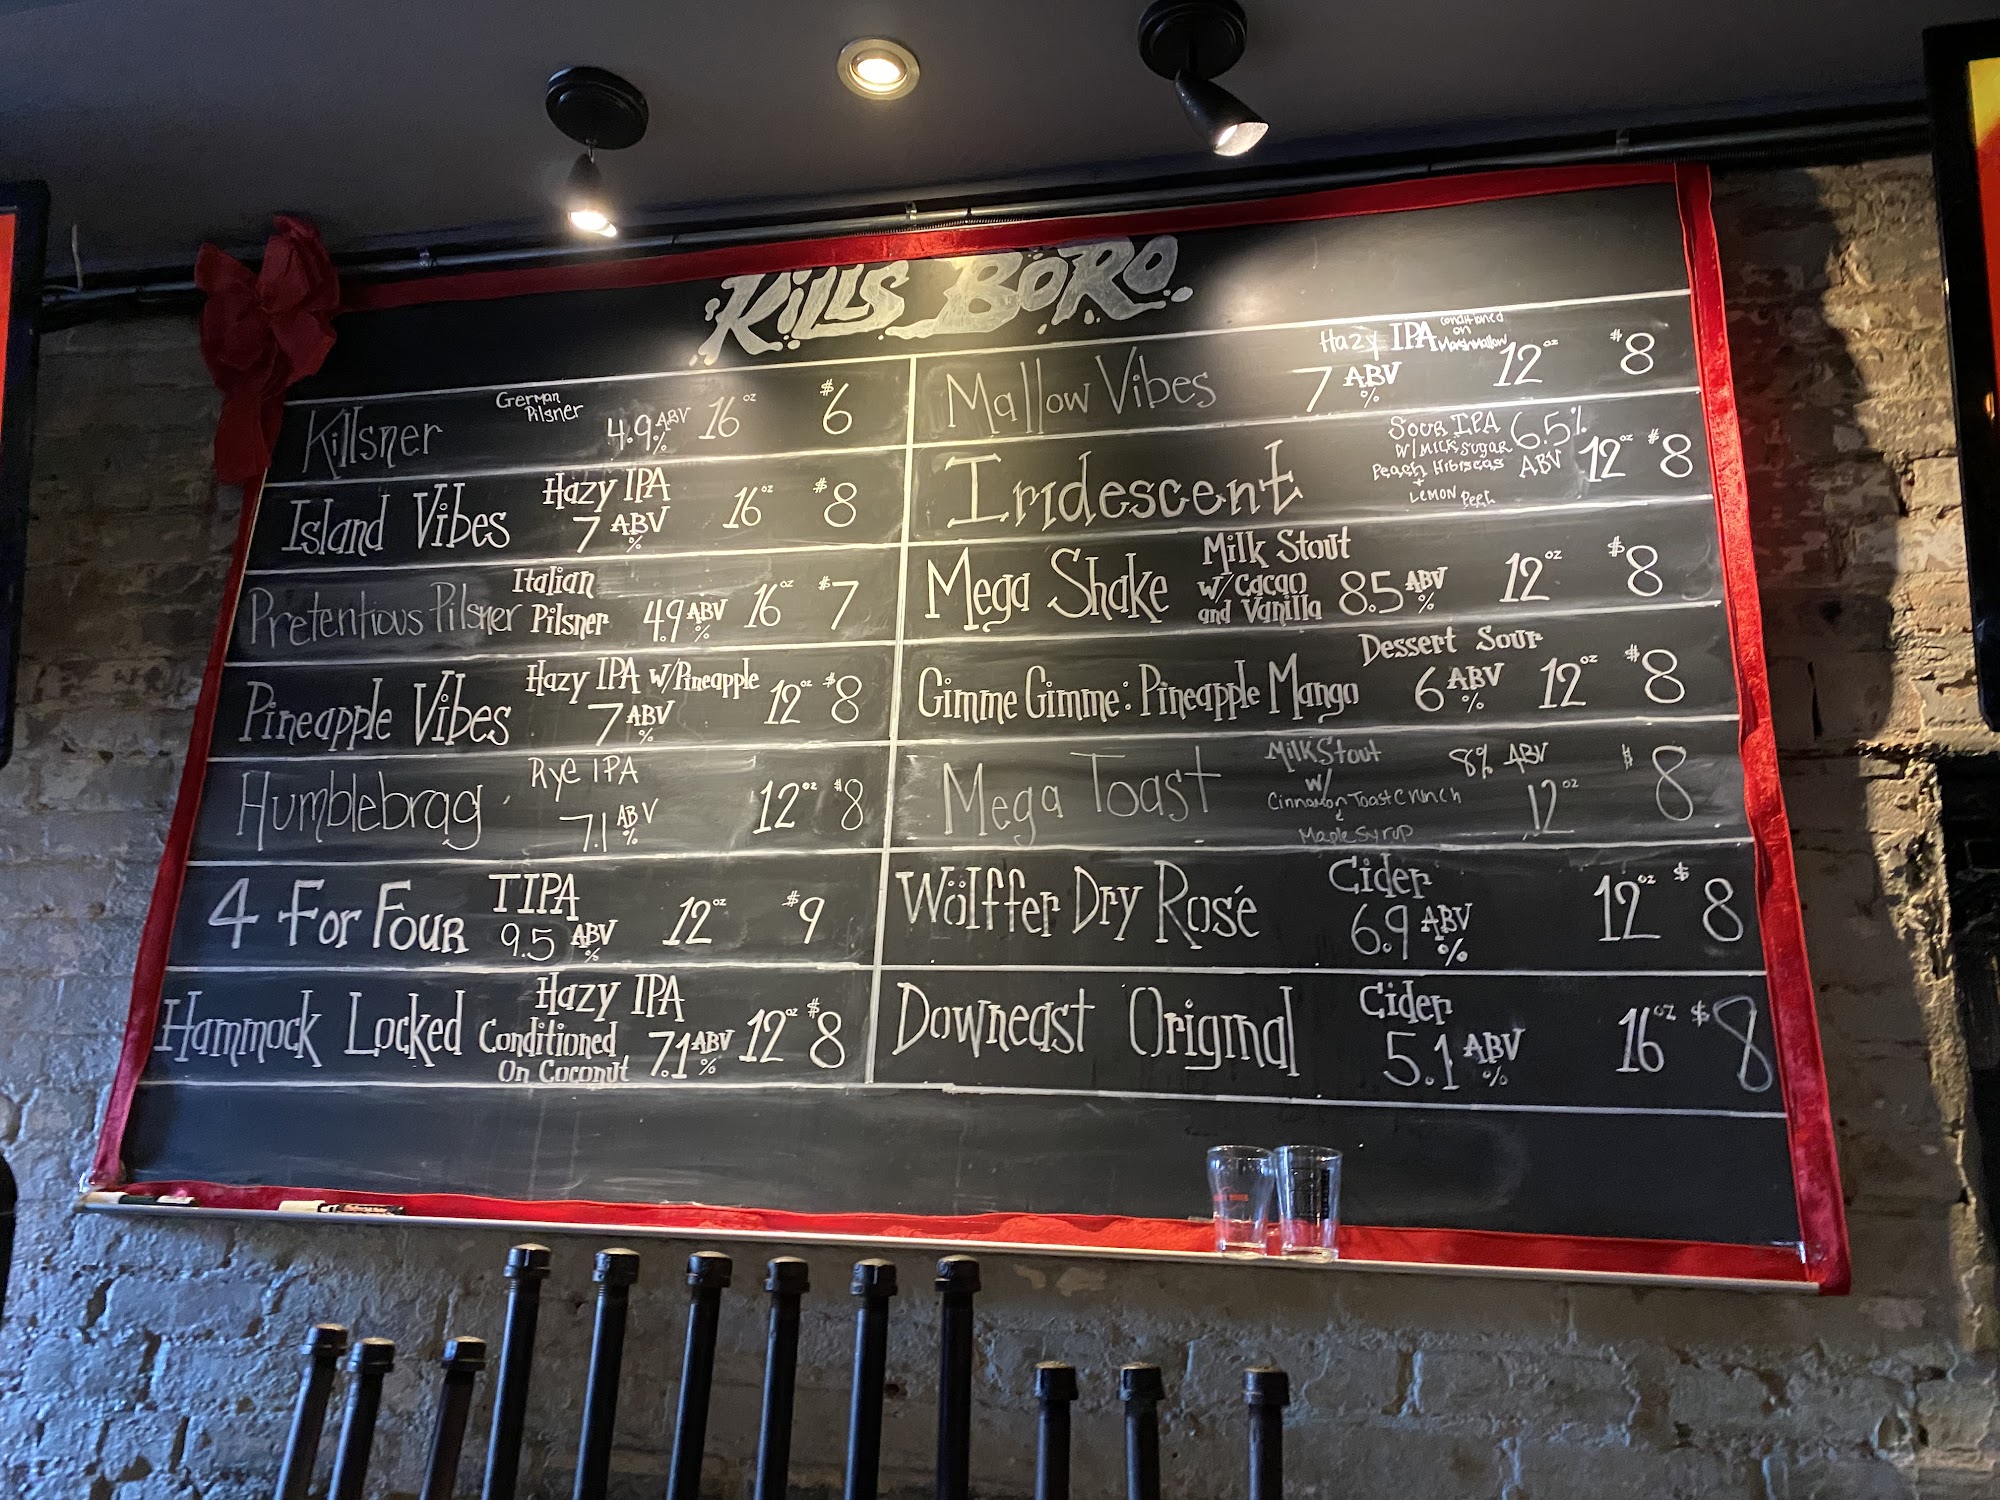 Kills Boro
Killsner German Pilsner 4.9 ABV % 16 oz $6
Island Vibes Hazy IPA 7 ABV % 16 oz $8
Pretentious Pilsner Italian Pilsner 4.9 ABV % 16 oz $7
Pineapple Vibes Hazy IPA w/Pineapple 7 ABV % 12 oz $8
Humblebrag Rye IPA 7.1 ABV % 12 oz $8
4 For Four TIPA 9.5 ABV % 12 oz $9
Hammock Locked Hazy IPA Conditioned On Coconut 7.1 ABV % 12 oz $8
Mallow Vibes Hazy IPA conditioned on Marshmallow 7 ABV % 12 oz $8
Iridescent Sour IPA w/ Milk Sugar Peach Hibiscus + Lemon Peel 6.5% ABV 12 oz $8
Mega Shake Milk Stout w/ Cacao and Vanilla 8.5 ABV % 12 oz $8
Gimme Gimme: Pineapple Mango Dessert Sour 6 ABV % 12 oz $8
Mega Toast Milk Stout w/ Cinnamon Toast Crunch & Maple Syrup 8% ABV 12 oz $8
Wölffer Dry Rosé Cider 6.9 ABV % 12 oz $8
Downeast Original Cider 5.1 ABV % 16 oz $8